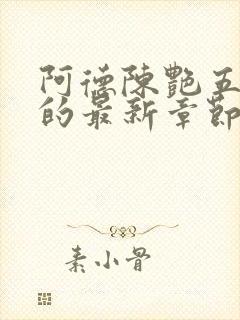 阿德陳艷五
的最新章節
素小骨